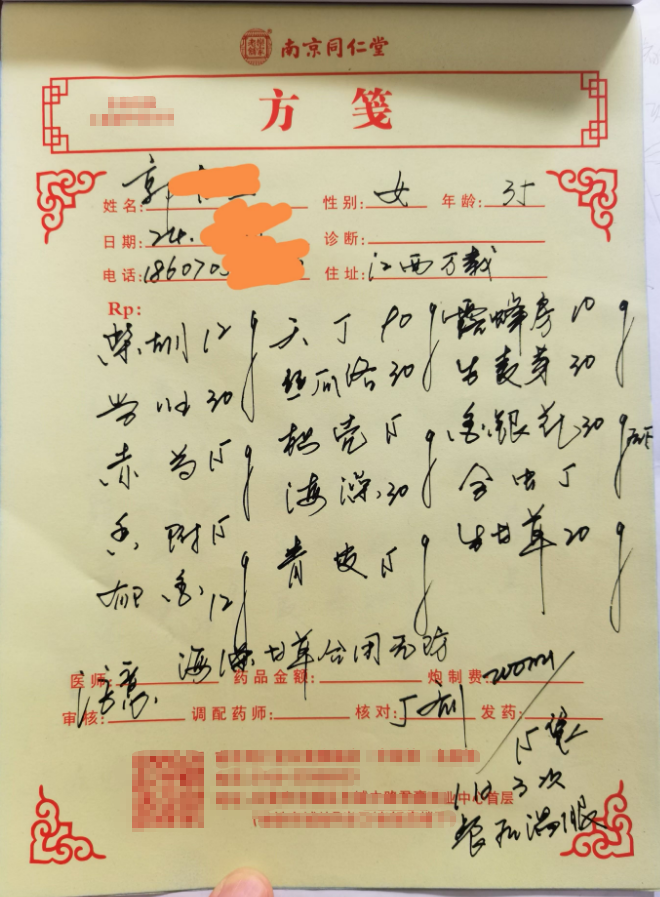 南京同仁堂
方笺
姓名: 郭 性别: 女 年龄: 35
日期: 24. 诊断:
电话: 186070 住址: 江西万载
Rp:
柴胡12g 天丁90g 露蜂房10g
当归30 丝瓜络30 生麦芽30
赤芍15g 枳壳15g 金银花30g
香附15 海藻30 全虫5
郁金12g 青皮15g 生甘草20g
海藻甘草合用无妨
医师: 药品金额: 炮制费: 200ml
审核: 调配药师: 核对: 发药:
15袋
1日3次
中心首层
饭后温服